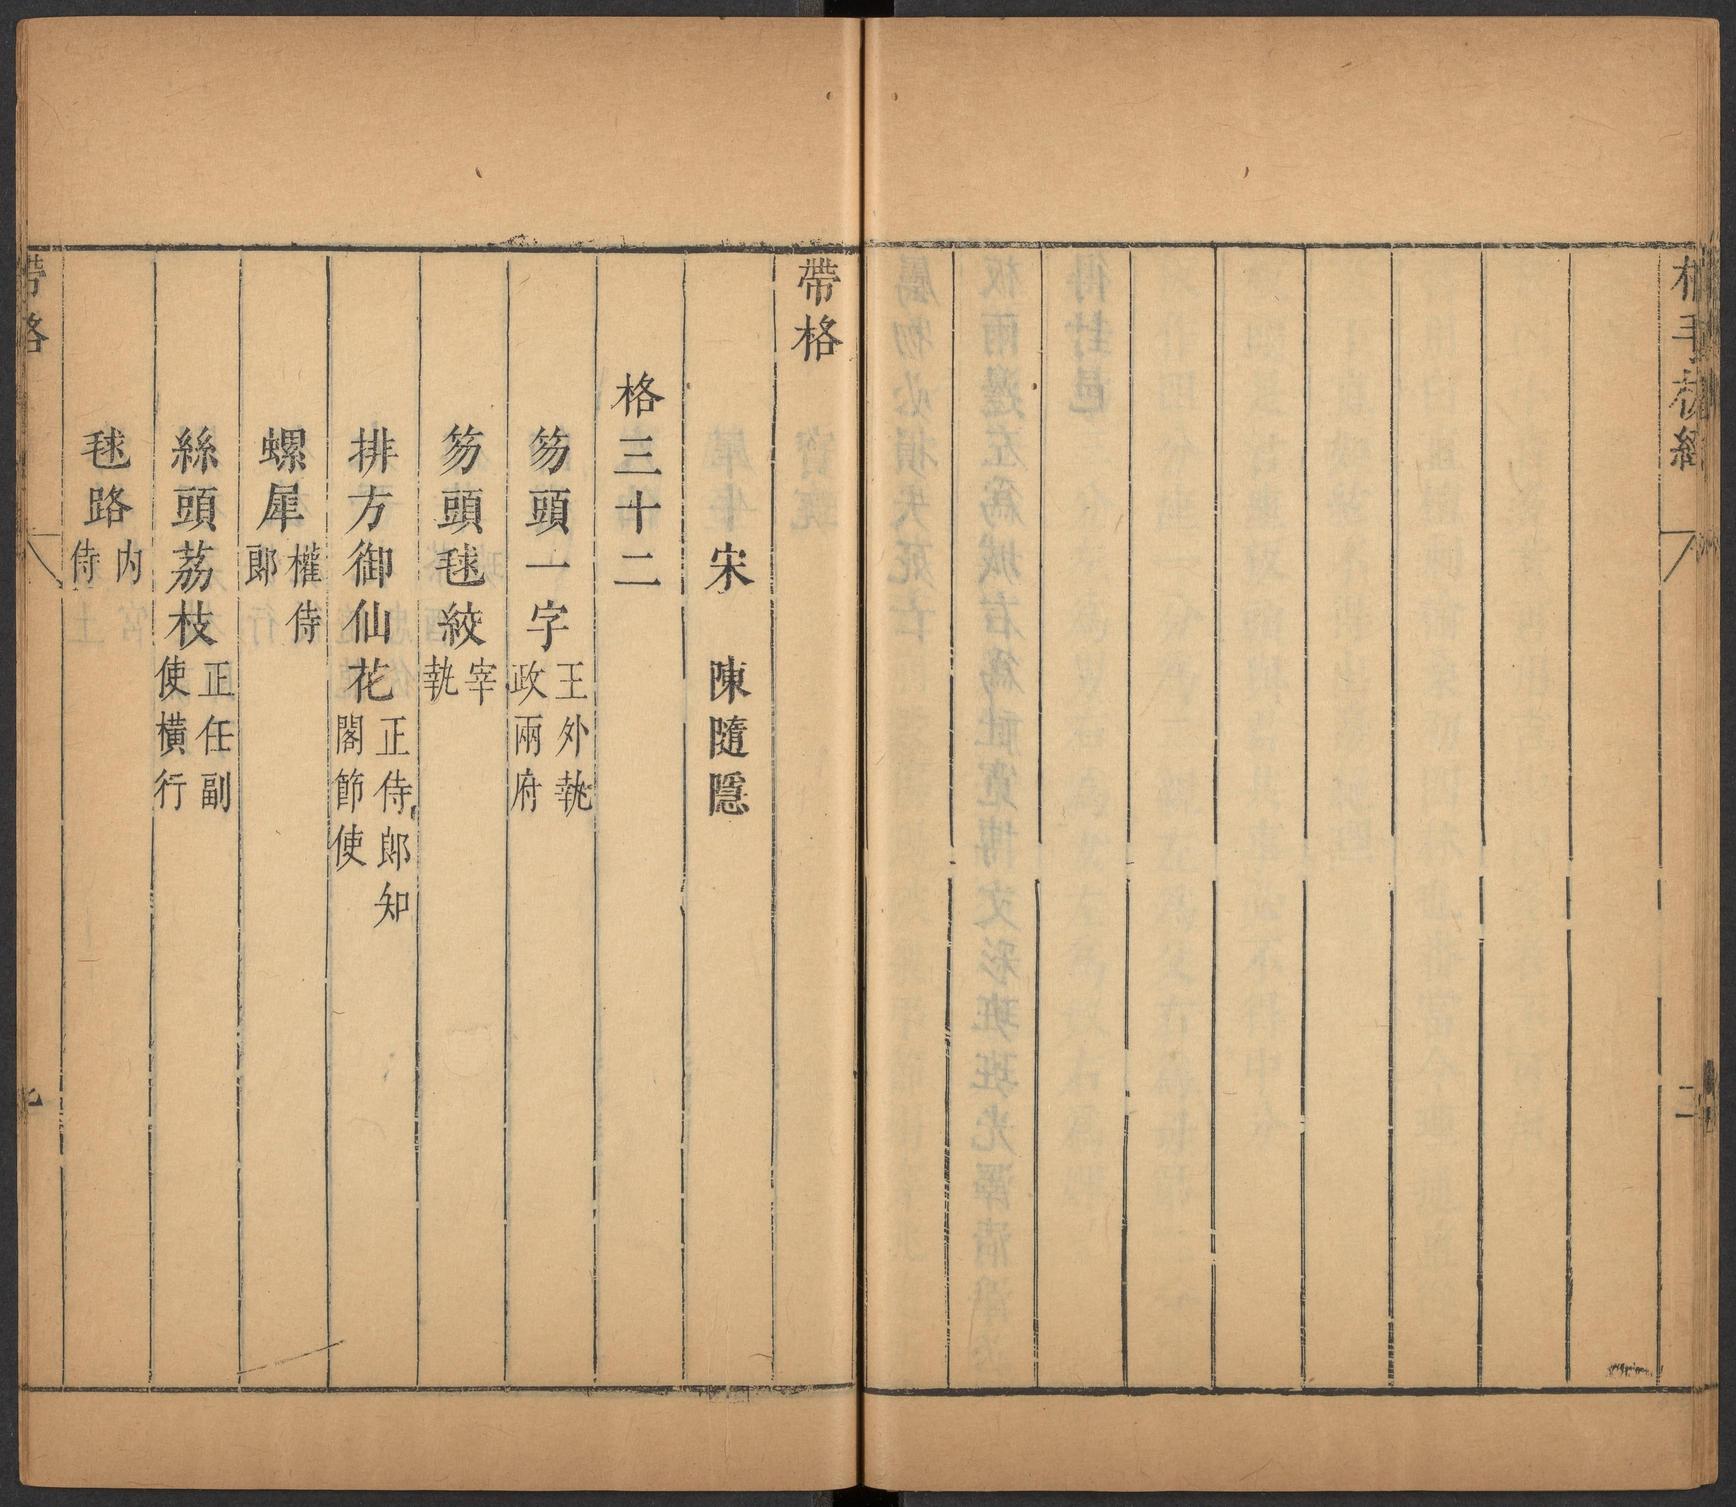 相手板經
三
帶格
宋 陳隨隱
格三十二
笏頭一字王外執政兩府
笏頭毬紋宰執
排方御仙花正侍郎知閣節使
螺犀權侍郎
絲頭荔枝正任副使橫行
毬路內侍
帶格